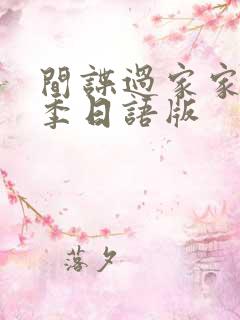 間諜過家家
季日語版
落夕